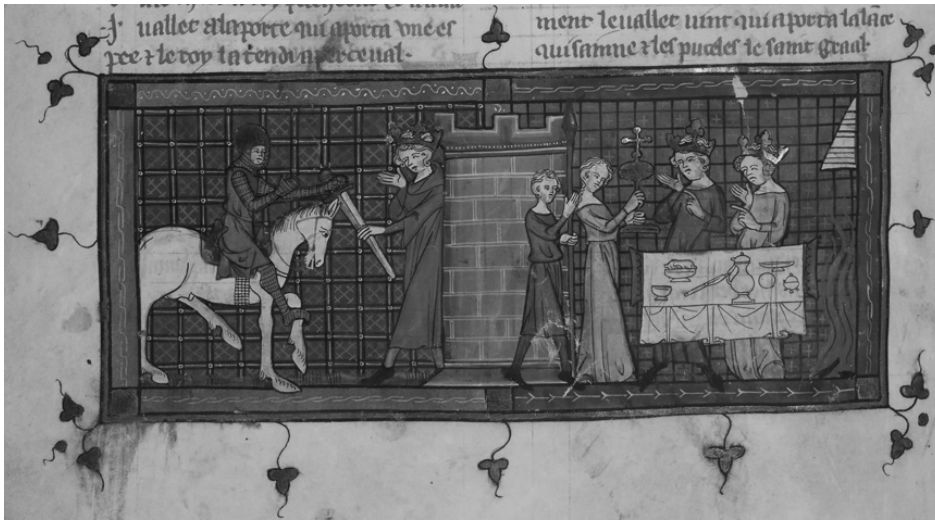 vallet a la porte qui aporta vne es
pee ⁊ le roy la tendi a perceual.
ment le vallet vint qui aporta la lāce
qui sainne ⁊ les puceles le saint graal.